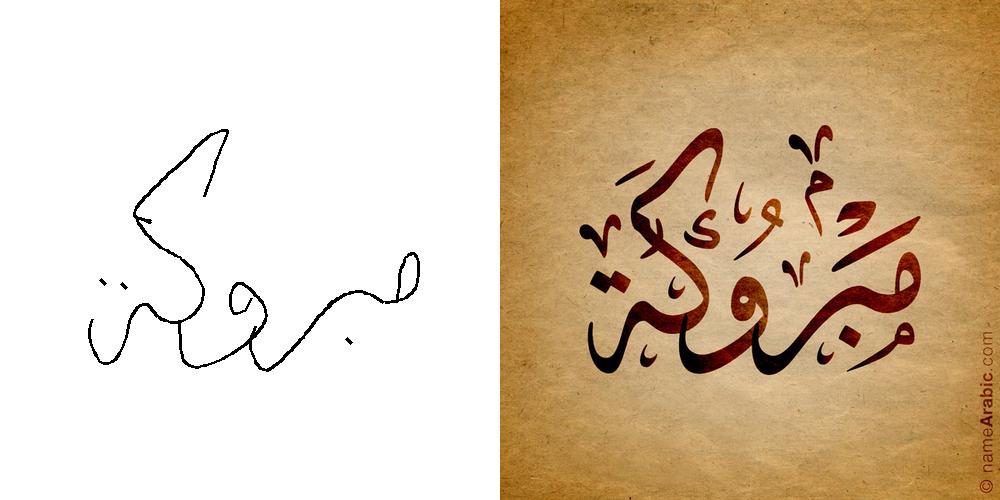 مبروكة
مَبْرُوكَة
© nameArabic.com